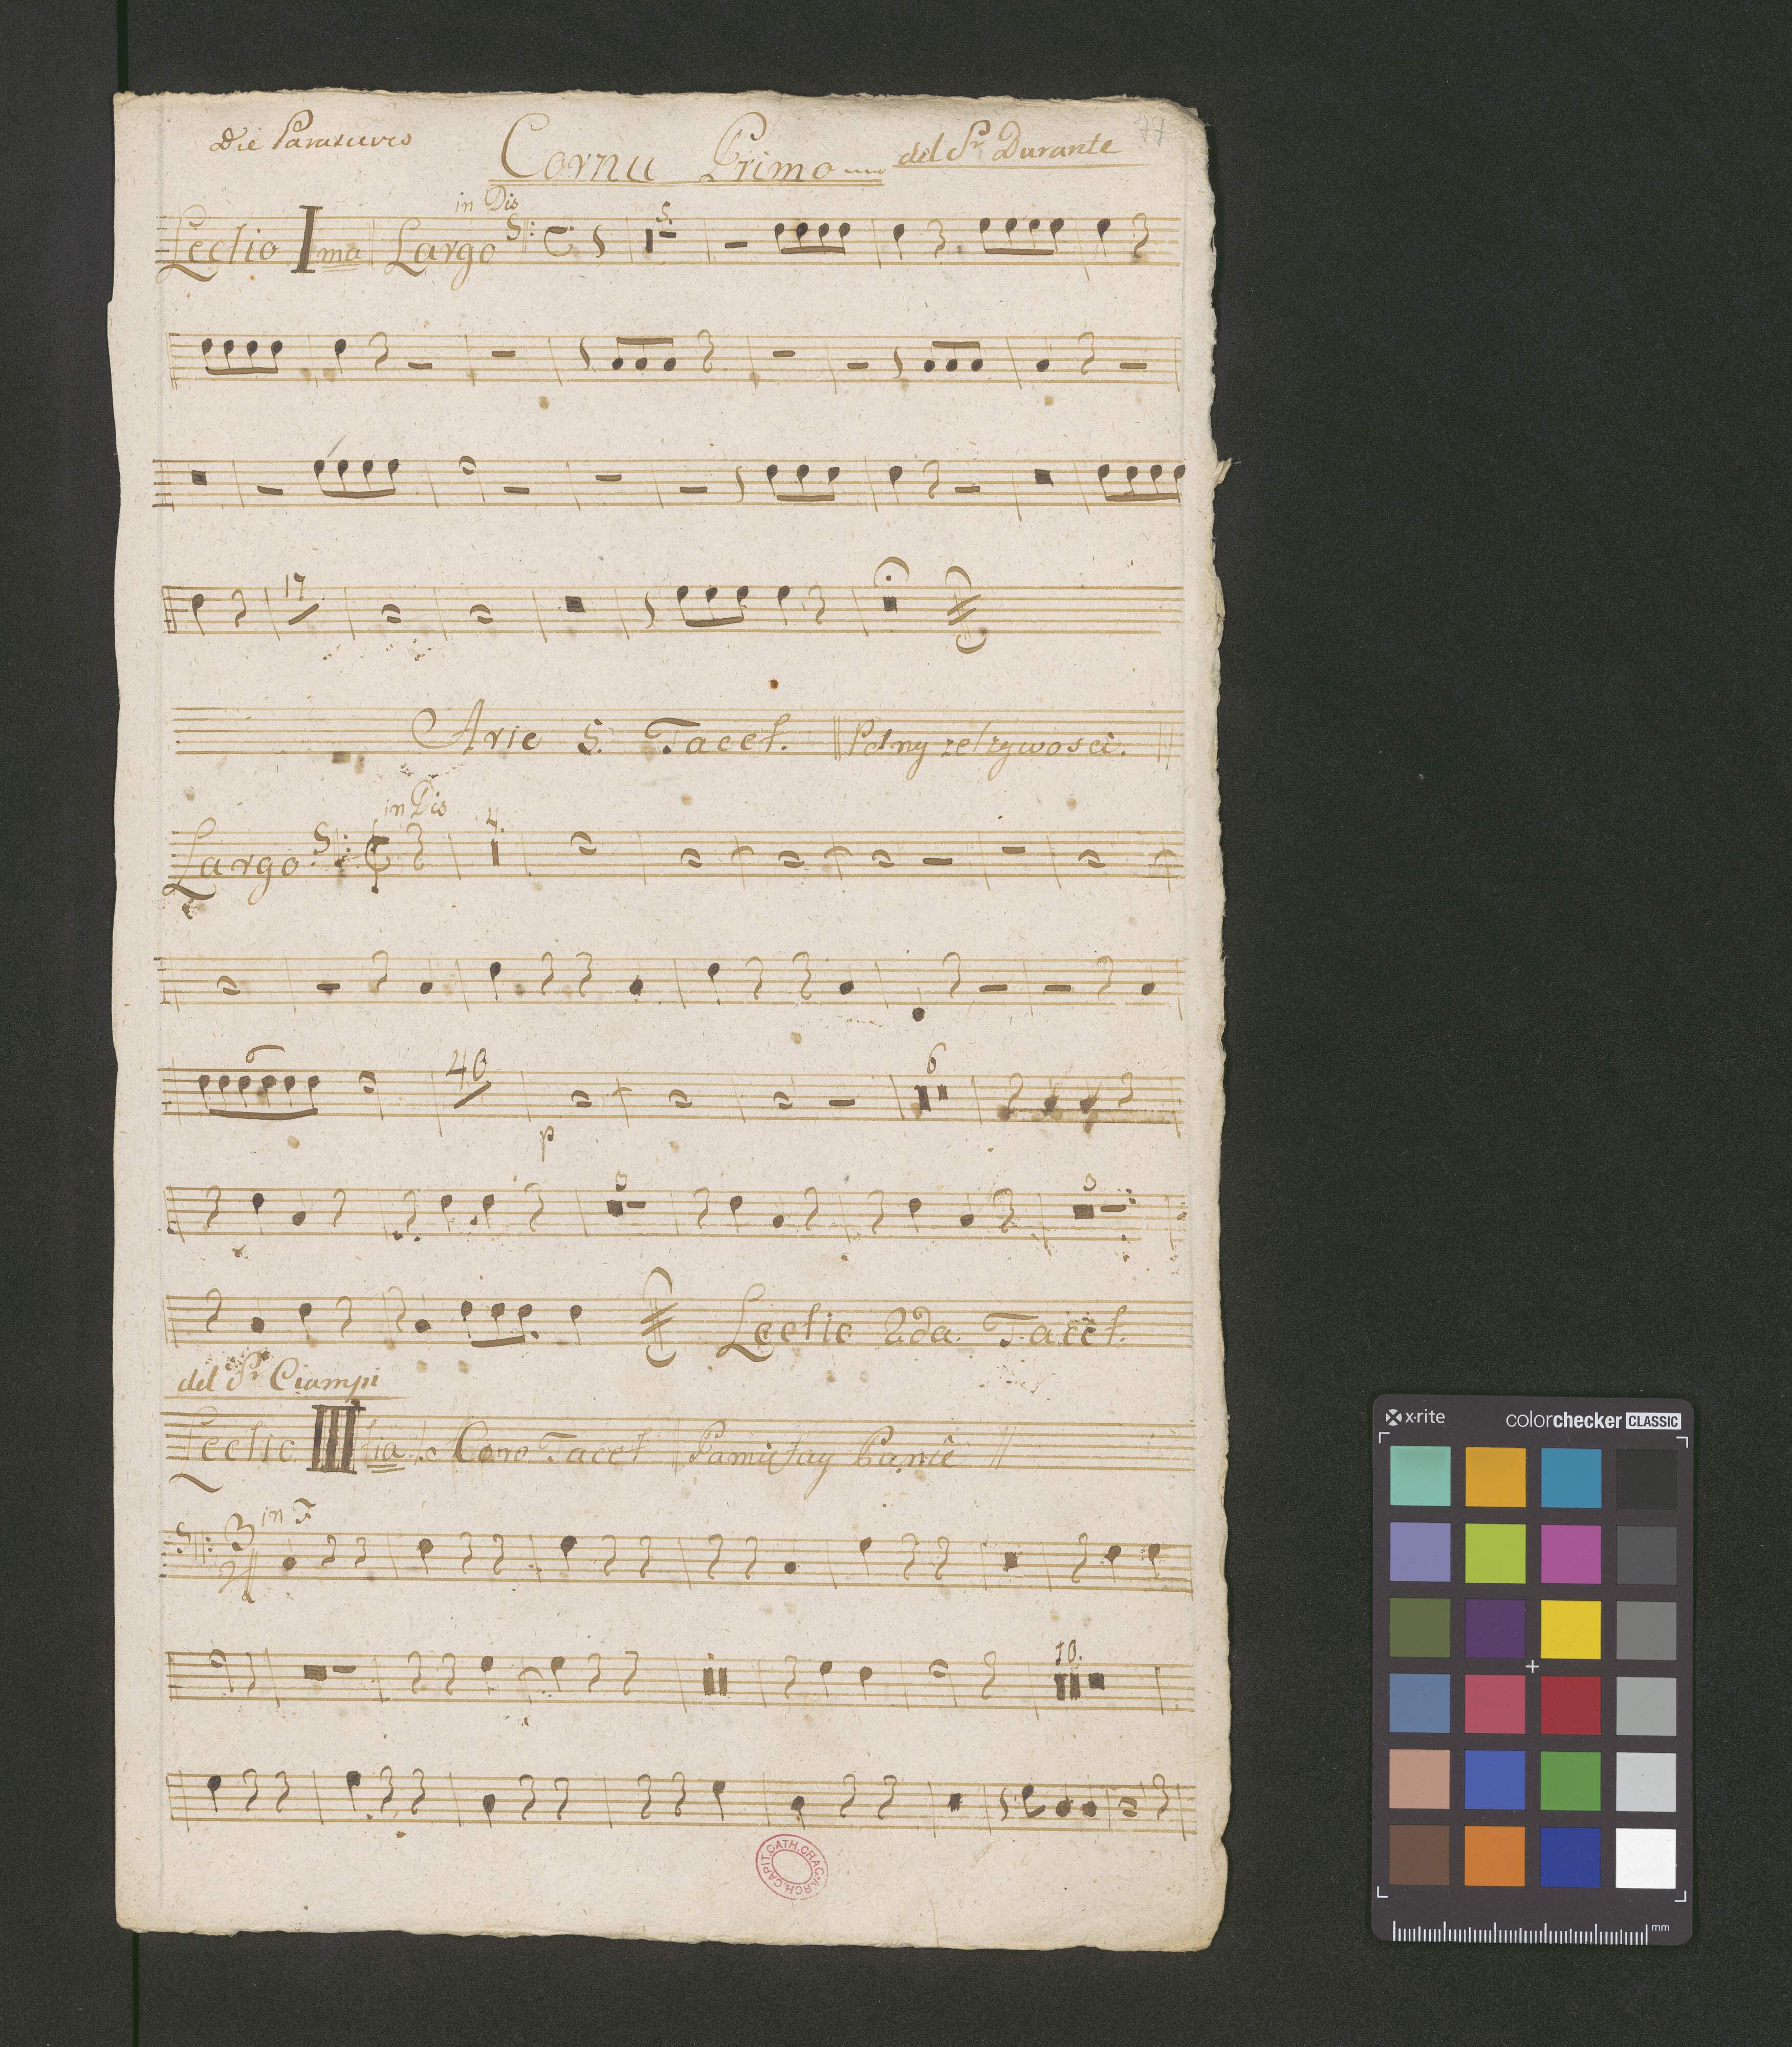 Die Parasceves
Cornu Primo del Sr. Durante 77
in Dis
Lectio Ima Largo 5.
17
Arie 5. Tacet. Pełny zelzywosci.
in Dis
Largo 4.
6
40
p 6
Lectio 2da. Tacet.
del Sr. Ciampi
Lectio IIItia Coro Tacet Pamiętay Panie
in F
3
4
10.
ARCH. CAPIT. CATH. CRAC.
x·rite colorchecker CLASSIC
mm